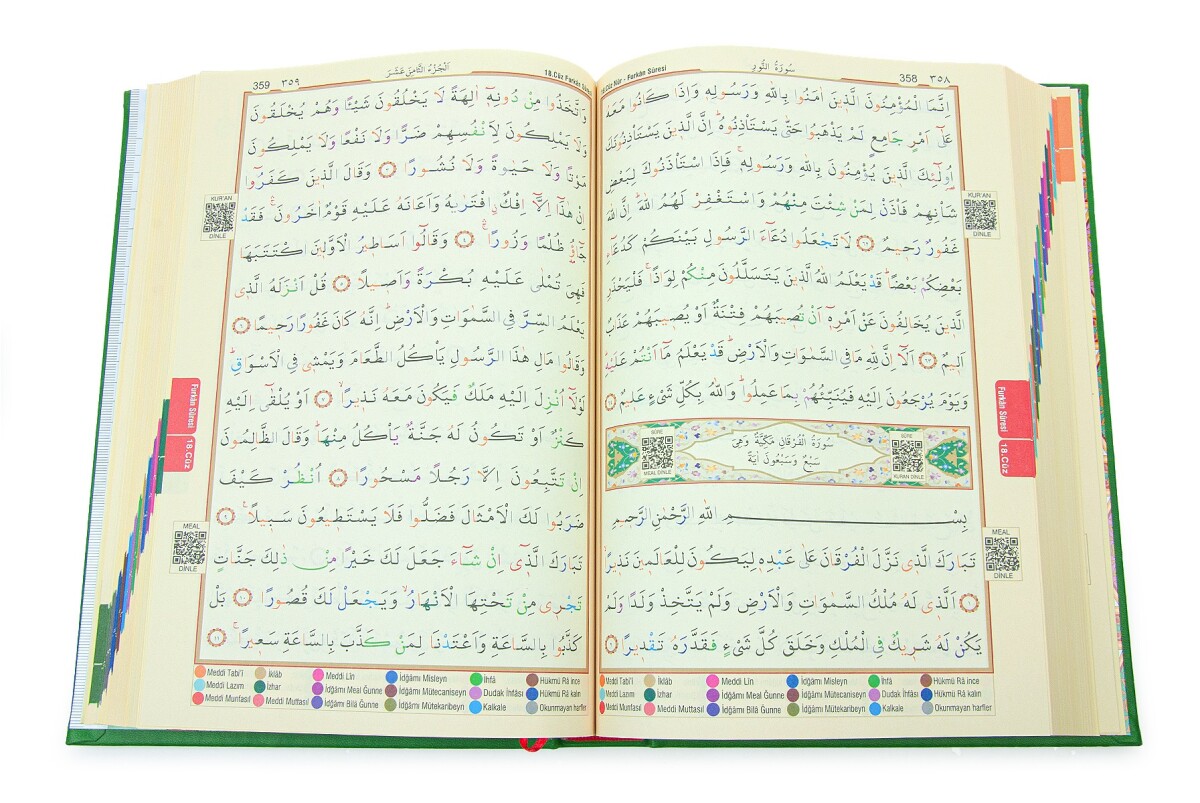 358 ٣٥٨
سُورَةُ النُّورِ
Nûr - Furkân Sûresi
اِنَّمَا الْمُؤْمِنُونَ الَّذ۪ينَ اٰمَنُوا بِاللّٰهِ وَرَسُولِه۪ وَاِذَا كَانُوا مَعَهُ
عَلٰٓى اَمْرٍ جَامِعٍ لَمْ يَذْهَبُوا حَتّٰى يَسْتَأْذِنُوهُۜ اِنَّ الَّذ۪ينَ يَسْتَأْذِنُونَكَ
اُو۬لٰٓئِكَ الَّذ۪ينَ يُؤْمِنُونَ بِاللّٰهِ وَرَسُولِه۪ۚ فَاِذَا اسْتَأْذَنُوكَ لِبَعْضِ
شَأْنِهِمْ فَأْذَنْ لِمَنْ شِئْتَ مِنْهُمْ وَاسْتَغْفِرْ لَهُمُ اللّٰهَۜ اِنَّ اللّٰهَ
غَفُورٌ رَح۪يمٌ ﴿٦٢﴾ لَا تَجْعَلُوا دُعَٓاءَ الرَّسُولِ بَيْنَكُمْ كَدُعَٓاءِ
بَعْضِكُمْ بَعْضًاۜ قَدْ يَعْلَمُ اللّٰهُ الَّذ۪ينَ يَتَسَلَّلُونَ مِنْكُمْ لِوَاذًاۚ فَلْيَحْذَرِ
الَّذ۪ينَ يُخَالِفُونَ عَنْ اَمْرِه۪ٓ اَنْ تُص۪يبَهُمْ فِتْنَةٌ اَوْ يُص۪يبَهُمْ عَذَابٌ
اَل۪يمٌ ﴿٦٣﴾ اَلَٓا اِنَّ لِلّٰهِ مَا فِي السَّمٰوَاتِ وَالْاَرْضِۜ قَدْ يَعْلَمُ مَٓا اَنْتُمْ عَلَيْهِ
وَيَوْمَ يُرْجَعُونَ اِلَيْهِ فَيُنَبِّئُهُمْ بِمَا عَمِلُواۜ وَاللّٰهُ بِكُلِّ شَيْءٍ عَل۪يمٌ
سُورَةُ الْفُرْقَانِ مَكِّيَّةٌ وَهِيَ
سَبْعٌ وَسَبْعُونَ اٰيَةً
SÛRE
MEAL DİNLE
SÛRE
KURAN DİNLE
بِسْمِ اللّٰهِ الرَّحْمٰنِ الرَّح۪يمِ
تَبَارَكَ الَّذ۪ي نَزَّلَ الْفُرْقَانَ عَلٰى عَبْدِه۪ لِيَكُونَ لِلْعَالَم۪ينَ نَذ۪يرًا
﴿١﴾ اَلَّذ۪ي لَهُ مُلْكُ السَّمٰوَاتِ وَالْاَرْضِ وَلَمْ يَتَّخِذْ وَلَدًا وَلَمْ
يَكُنْ لَهُ شَر۪يكٌ فِي الْمُلْكِ وَخَلَقَ كُلَّ شَيْءٍ فَقَدَّرَهُ تَقْد۪يرًا ﴿٢﴾
KUR'AN
DİNLE
Furkân Sûresi
18.Cüz
MEAL
DİNLE
Meddi Tabi'î İklâb Meddi Lîn İdğâmı Misleyn İhfâ Hükmü Râ ince
Meddi Lazım İzhar İdğâmı Meal Ğunne İdğâmı Mütecaniseyn Dudak İhfâsı Hükmü Râ kalın
Meddi Munfasıl Meddi Muttasıl İdğâmı Bilâ Ğunne İdğâmı Mütekaribeyn Kalkale Okunmayan harfler
359 ٣٥٩
اَلْجُزْءُ الثَّامِنُ عَشَرَ
18.Cüz Furkân Sûresi
وَاتَّخَذُوا مِنْ دُونِه۪ٓ اٰلِهَةً لَا يَخْلُقُونَ شَيْئًا وَهُمْ يُخْلَقُونَ
وَلَا يَمْلِكُونَ لِاَنْفُسِهِمْ ضَرًّا وَلَا نَفْعًا وَلَا يَمْلِكُونَ
مَوْتًا وَلَا حَيٰوةً وَلَا نُشُورًا ﴿٣﴾ وَقَالَ الَّذ۪ينَ كَفَرُٓوا
اِنْ هٰذَٓا اِلَّٓا اِفْكٌۨ افْتَرٰيهُ وَاَعَانَهُ عَلَيْهِ قَوْمٌ اٰخَرُونَۚ فَقَدْ
جَٓاؤُ۫ ظُلْمًا وَزُورًاۚ ﴿٤﴾ وَقَالُٓوا اَسَاط۪يرُ الْاَوَّل۪ينَ اكْتَتَبَهَا
فَهِيَ تُمْلٰى عَلَيْهِ بُكْرَةً وَاَص۪يلًا ﴿٥﴾ قُلْ اَنْزَلَهُ الَّذ۪ي
يَعْلَمُ السِّرَّ فِي السَّمٰوَاتِ وَالْاَرْضِۜ اِنَّهُ كَانَ غَفُورًا رَح۪يمًا ﴿٦﴾
وَقَالُوا مَالِ هٰذَا الرَّسُولِ يَأْكُلُ الطَّعَامَ وَيَمْش۪ي فِي الْاَسْوَاقِۜ
لَوْلَٓا اُنْزِلَ اِلَيْهِ مَلَكٌ فَيَكُونَ مَعَهُ نَذ۪يرًاۙ ﴿٧﴾ اَوْ يُلْقٰٓى اِلَيْهِ
كَنْزٌ اَوْ تَكُونُ لَهُ جَنَّةٌ يَأْكُلُ مِنْهَاۜ وَقَالَ الظَّالِمُونَ
اِنْ تَتَّبِعُونَ اِلَّا رَجُلًا مَسْحُورًا ﴿٨﴾ اُنْظُرْ كَيْفَ
ضَرَبُوا لَكَ الْاَمْثَالَ فَضَلُّوا فَلَا يَسْتَط۪يعُونَ سَب۪يلًا۟ ﴿٩﴾
تَبَارَكَ الَّذ۪ٓي اِنْ شَٓاءَ جَعَلَ لَكَ خَيْرًا مِنْ ذٰلِكَ جَنَّاتٍ
تَجْر۪ي مِنْ تَحْتِهَا الْاَنْهَارُۙ وَيَجْعَلْ لَكَ قُصُورًا ﴿١٠﴾ بَلْ
كَذَّبُوا بِالسَّاعَةِ وَاَعْتَدْنَا لِمَنْ كَذَّبَ بِالسَّاعَةِ سَع۪يرًاۚ ﴿١١﴾
KUR'AN
DİNLE
Furkân Sûresi
18.Cüz
MEAL
DİNLE
Meddi Tabi'î İklâb Meddi Lîn İdğâmı Misleyn İhfâ Hükmü Râ ince
Meddi Lazım İzhar İdğâmı Meal Ğunne İdğâmı Mütecaniseyn Dudak İhfâsı Hükmü Râ kalın
Meddi Munfasıl Meddi Muttasıl İdğâmı Bilâ Ğunne İdğâmı Mütekaribeyn Kalkale Okunmayan harfler